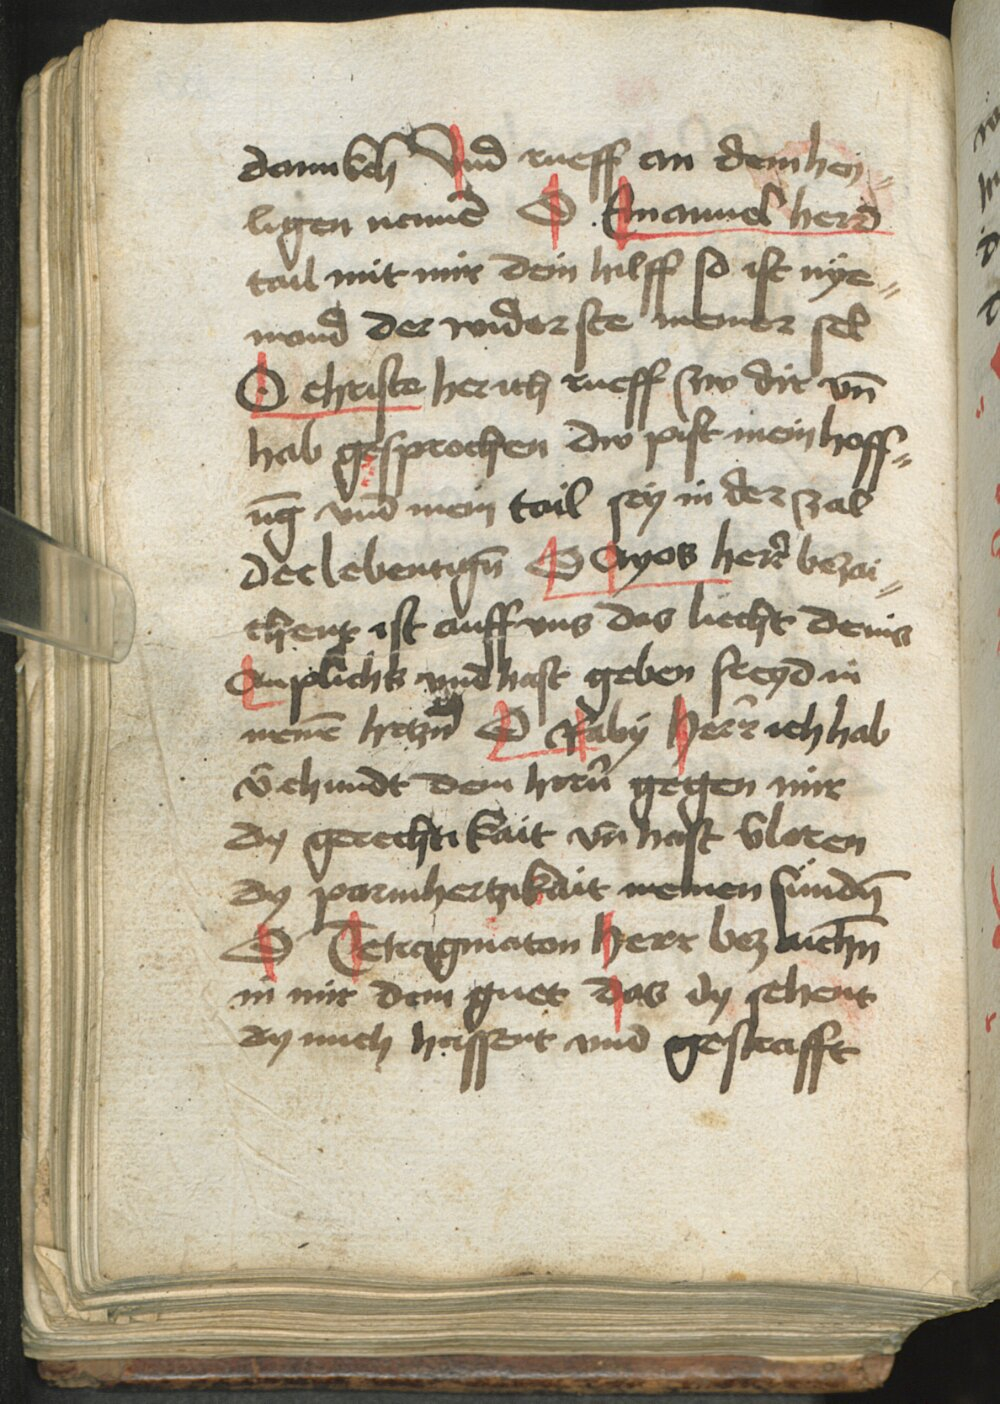 dannkch Vnd rueff an dein hei⸗
ligen namē O Emanuel herr
tail mit mir dein hilff so ist nye⸗
mand der wider ste meiner sel
O christe her ich rueff zw dir vn̄
hab gesprochen dw pist mein hoff⸗
ūg vnd mein tail sey in der zal
der lebentign̄ O Ayos herr bezai⸗
chent ist auff vns das liecht deins
Anplichs vnd hast geben freyd in
meinē hertzn̄ O Raby herr ich hab
v̄chundt dem hern̄ gegen mir
dy gerechtikait vn̄ hast v̄loren
dy parmhertzikait meinen sündn̄
O Tetragmaton herr bez aichn̄
in mir dein guet das dy sehent
dy mich hassent vnd gestrafft